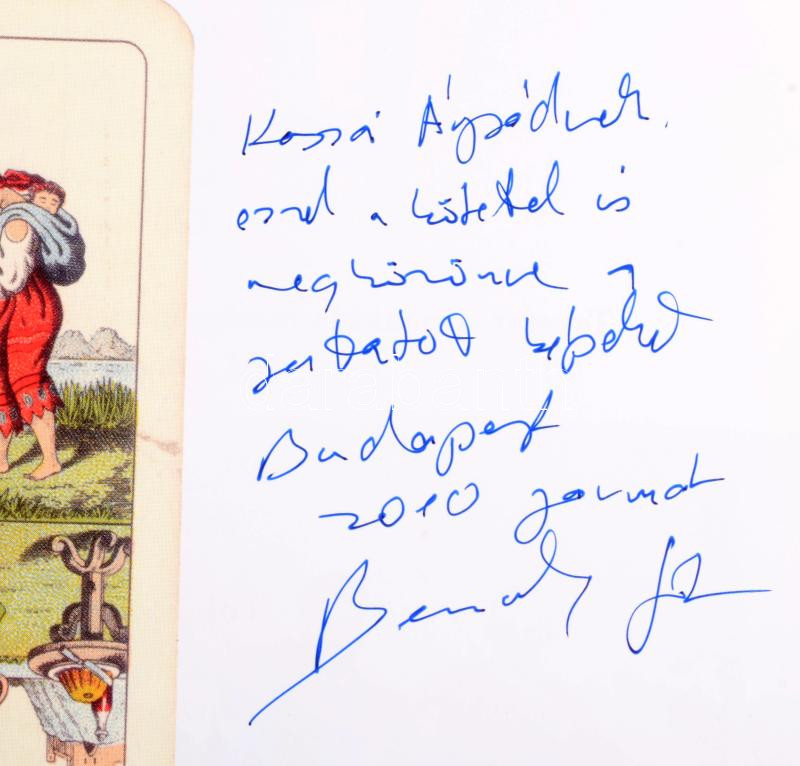 Kassai Árpádnak,
ezzel a kötettel is
megköszönve a
juttatott képeket
Budapest
2010 január
Benedek